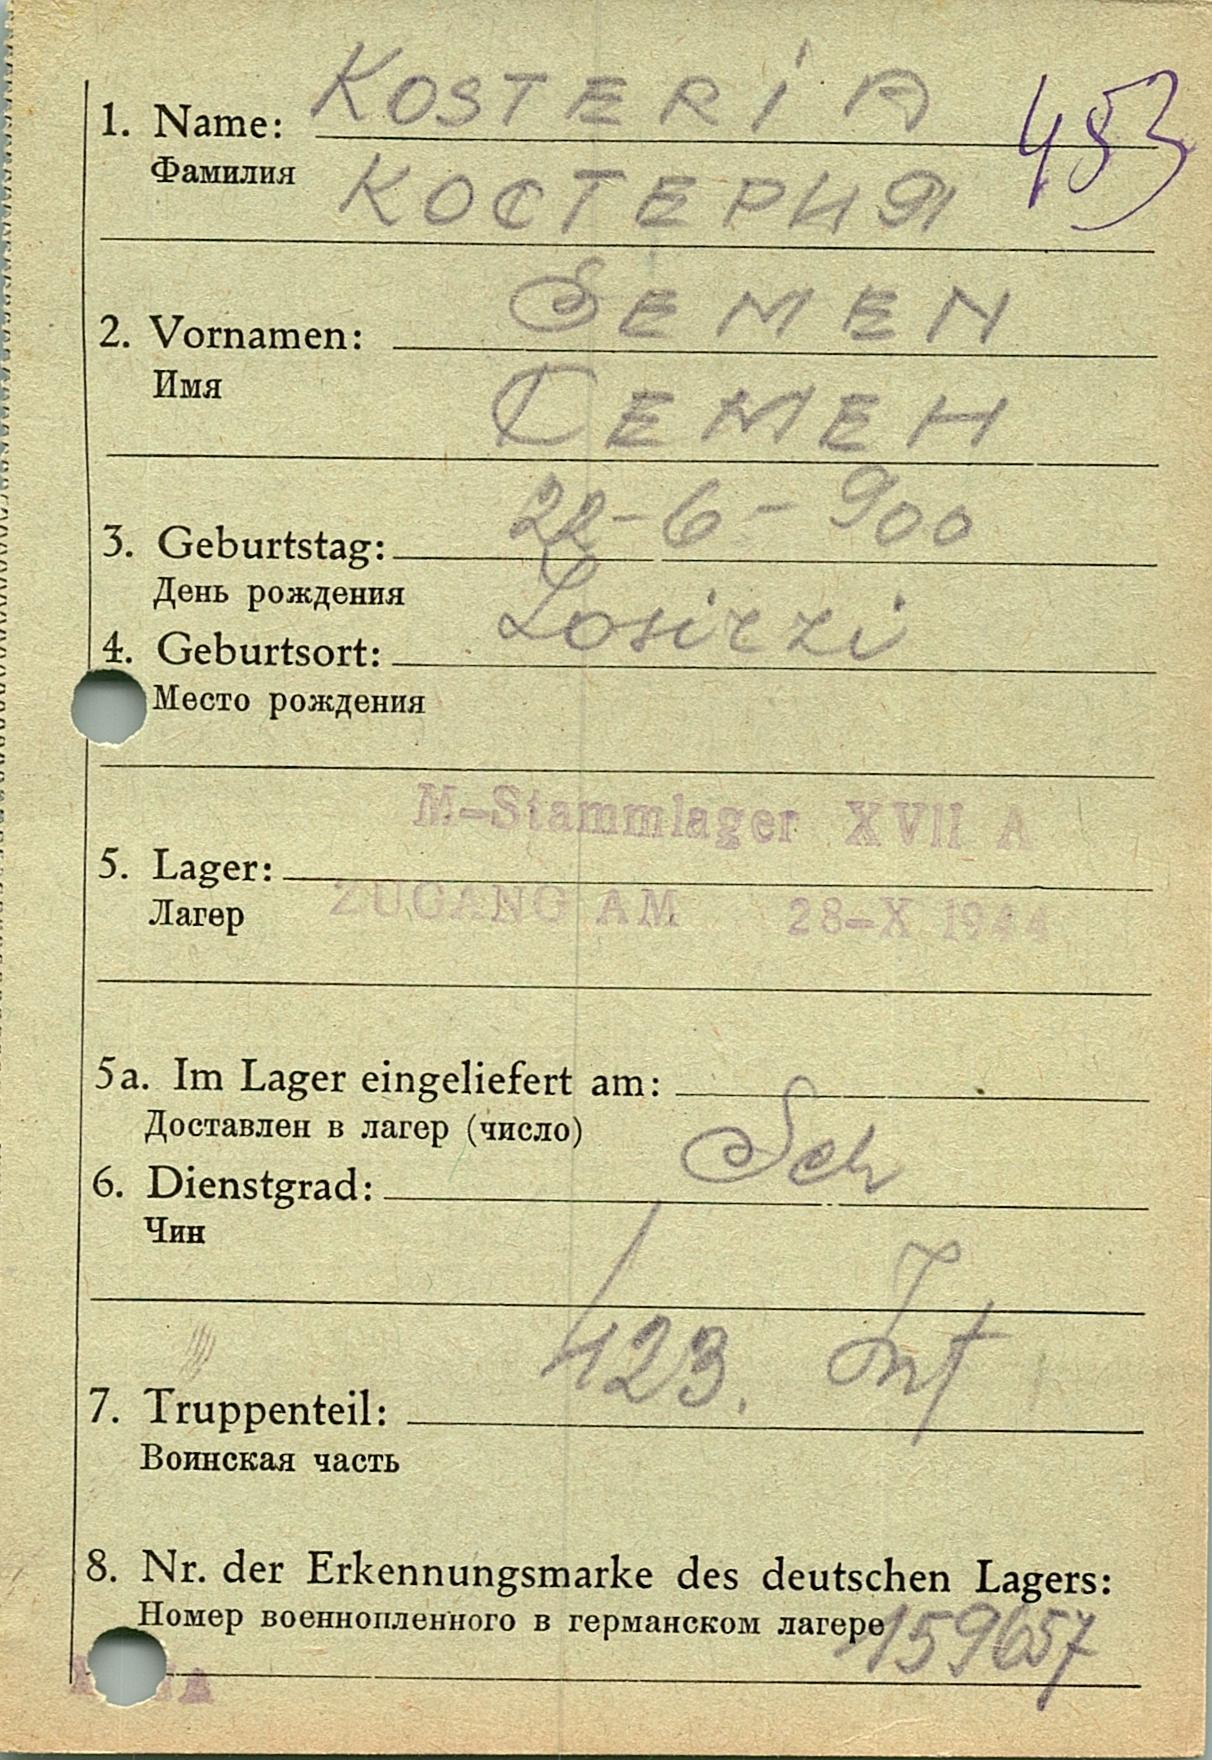 KOSTERIA
1. Name:
453
Фамилия
КОСТЕРИЯ
SEMEN
2. Vornamen:
Имя
СЕМЕН
22-6-900
3. Geburtstag:
День рождения
Losizzi
4. Geburtsort:
Место рождения
M-Stammlager XVII A
5. Lager:
Лагер
ZUGANG AM 28-X 1944
5a. Im Lager eingeliefert am:
Доставлен в лагер (число)
6. Dienstgrad: Sch
Чин
423. Inf
7. Truppenteil:
Воинская часть
8. Nr. der Erkennungsmarke des deutschen Lagers:
Номер военнопленного в германском лагере
159657